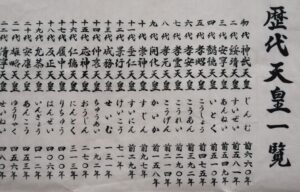 歷代天皇一覧
初代 神武天皇 じんむ 前六六〇年
二代 綏靖天皇 すいぜい 前五八一年
三代 安寧天皇 あんねい 前五四九年
四代 懿徳天皇 いとく 前五一〇年
五代 孝昭天皇 こうしょう 前四七五年
六代 孝安天皇 こうあん 前三九二年
七代 孝霊天皇 こうれい 前二九〇年
八代 孝元天皇 こうげん 前二一四年
九代 開化天皇 かいか 前一五八年
十代 崇神天皇 すじん 前九七年
十一代 垂仁天皇 すいにん 前二九年
十二代 景行天皇 けいこう 七一年
十三代 成務天皇 せいむ 一三一年
十四代 仲哀天皇 ちゅうあい 一九二年
十五代 応神天皇 おうじん 二七〇年
十六代 仁徳天皇 にんとく 三一三年
十七代 履中天皇 りちゅう 四〇〇年
十八代 反正天皇 はんぜい 四〇六年
十九代 允恭天皇 いんぎょう 四一二年
二十代 安康天皇 あんこう 四五三年
二十一代 雄略天皇 ゆうりゃく 四五六年
清寧天皇 せいねい 四八〇年